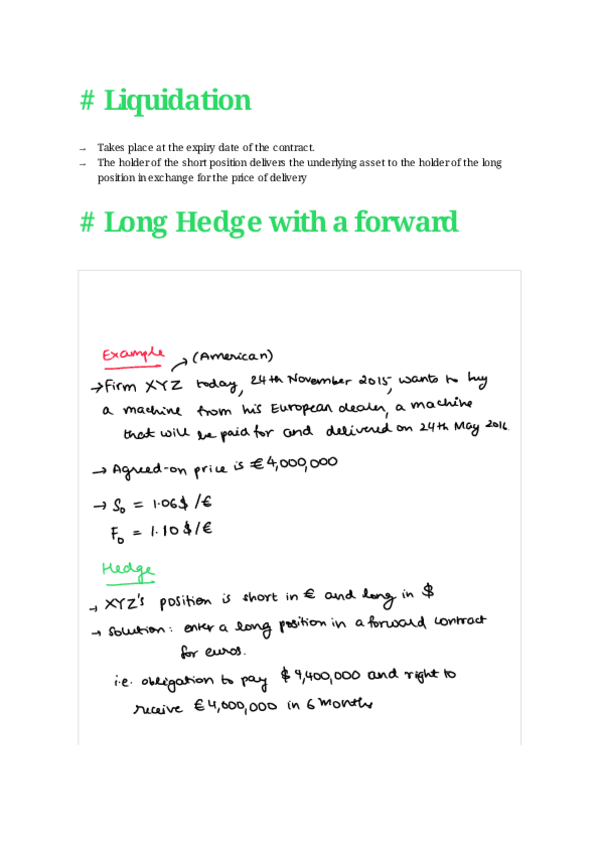 # Liquidation
→ Takes place at the expiry date of the contract.
→ The holder of the short position delivers the underlying asset to the holder of the long
position in exchange for the price of delivery
# Long Hedge with a forward
Example → (American)
→ Firm XYZ today, 24th November 2015, wants to buy
a machine from his European dealer, a machine
that will be paid for and delivered on 24th May 2016.
→ Agreed-on price is €4,000,000
→ S₀ = 1.06$/€
F₀ = 1.10$/€
Hedge
→ XYZ's position is short in € and long in $
→ Solution: enter a long position in a forward contract
for euros.
i.e. obligation to pay $4,400,000 and right to
receive €4,000,000 in 6 months